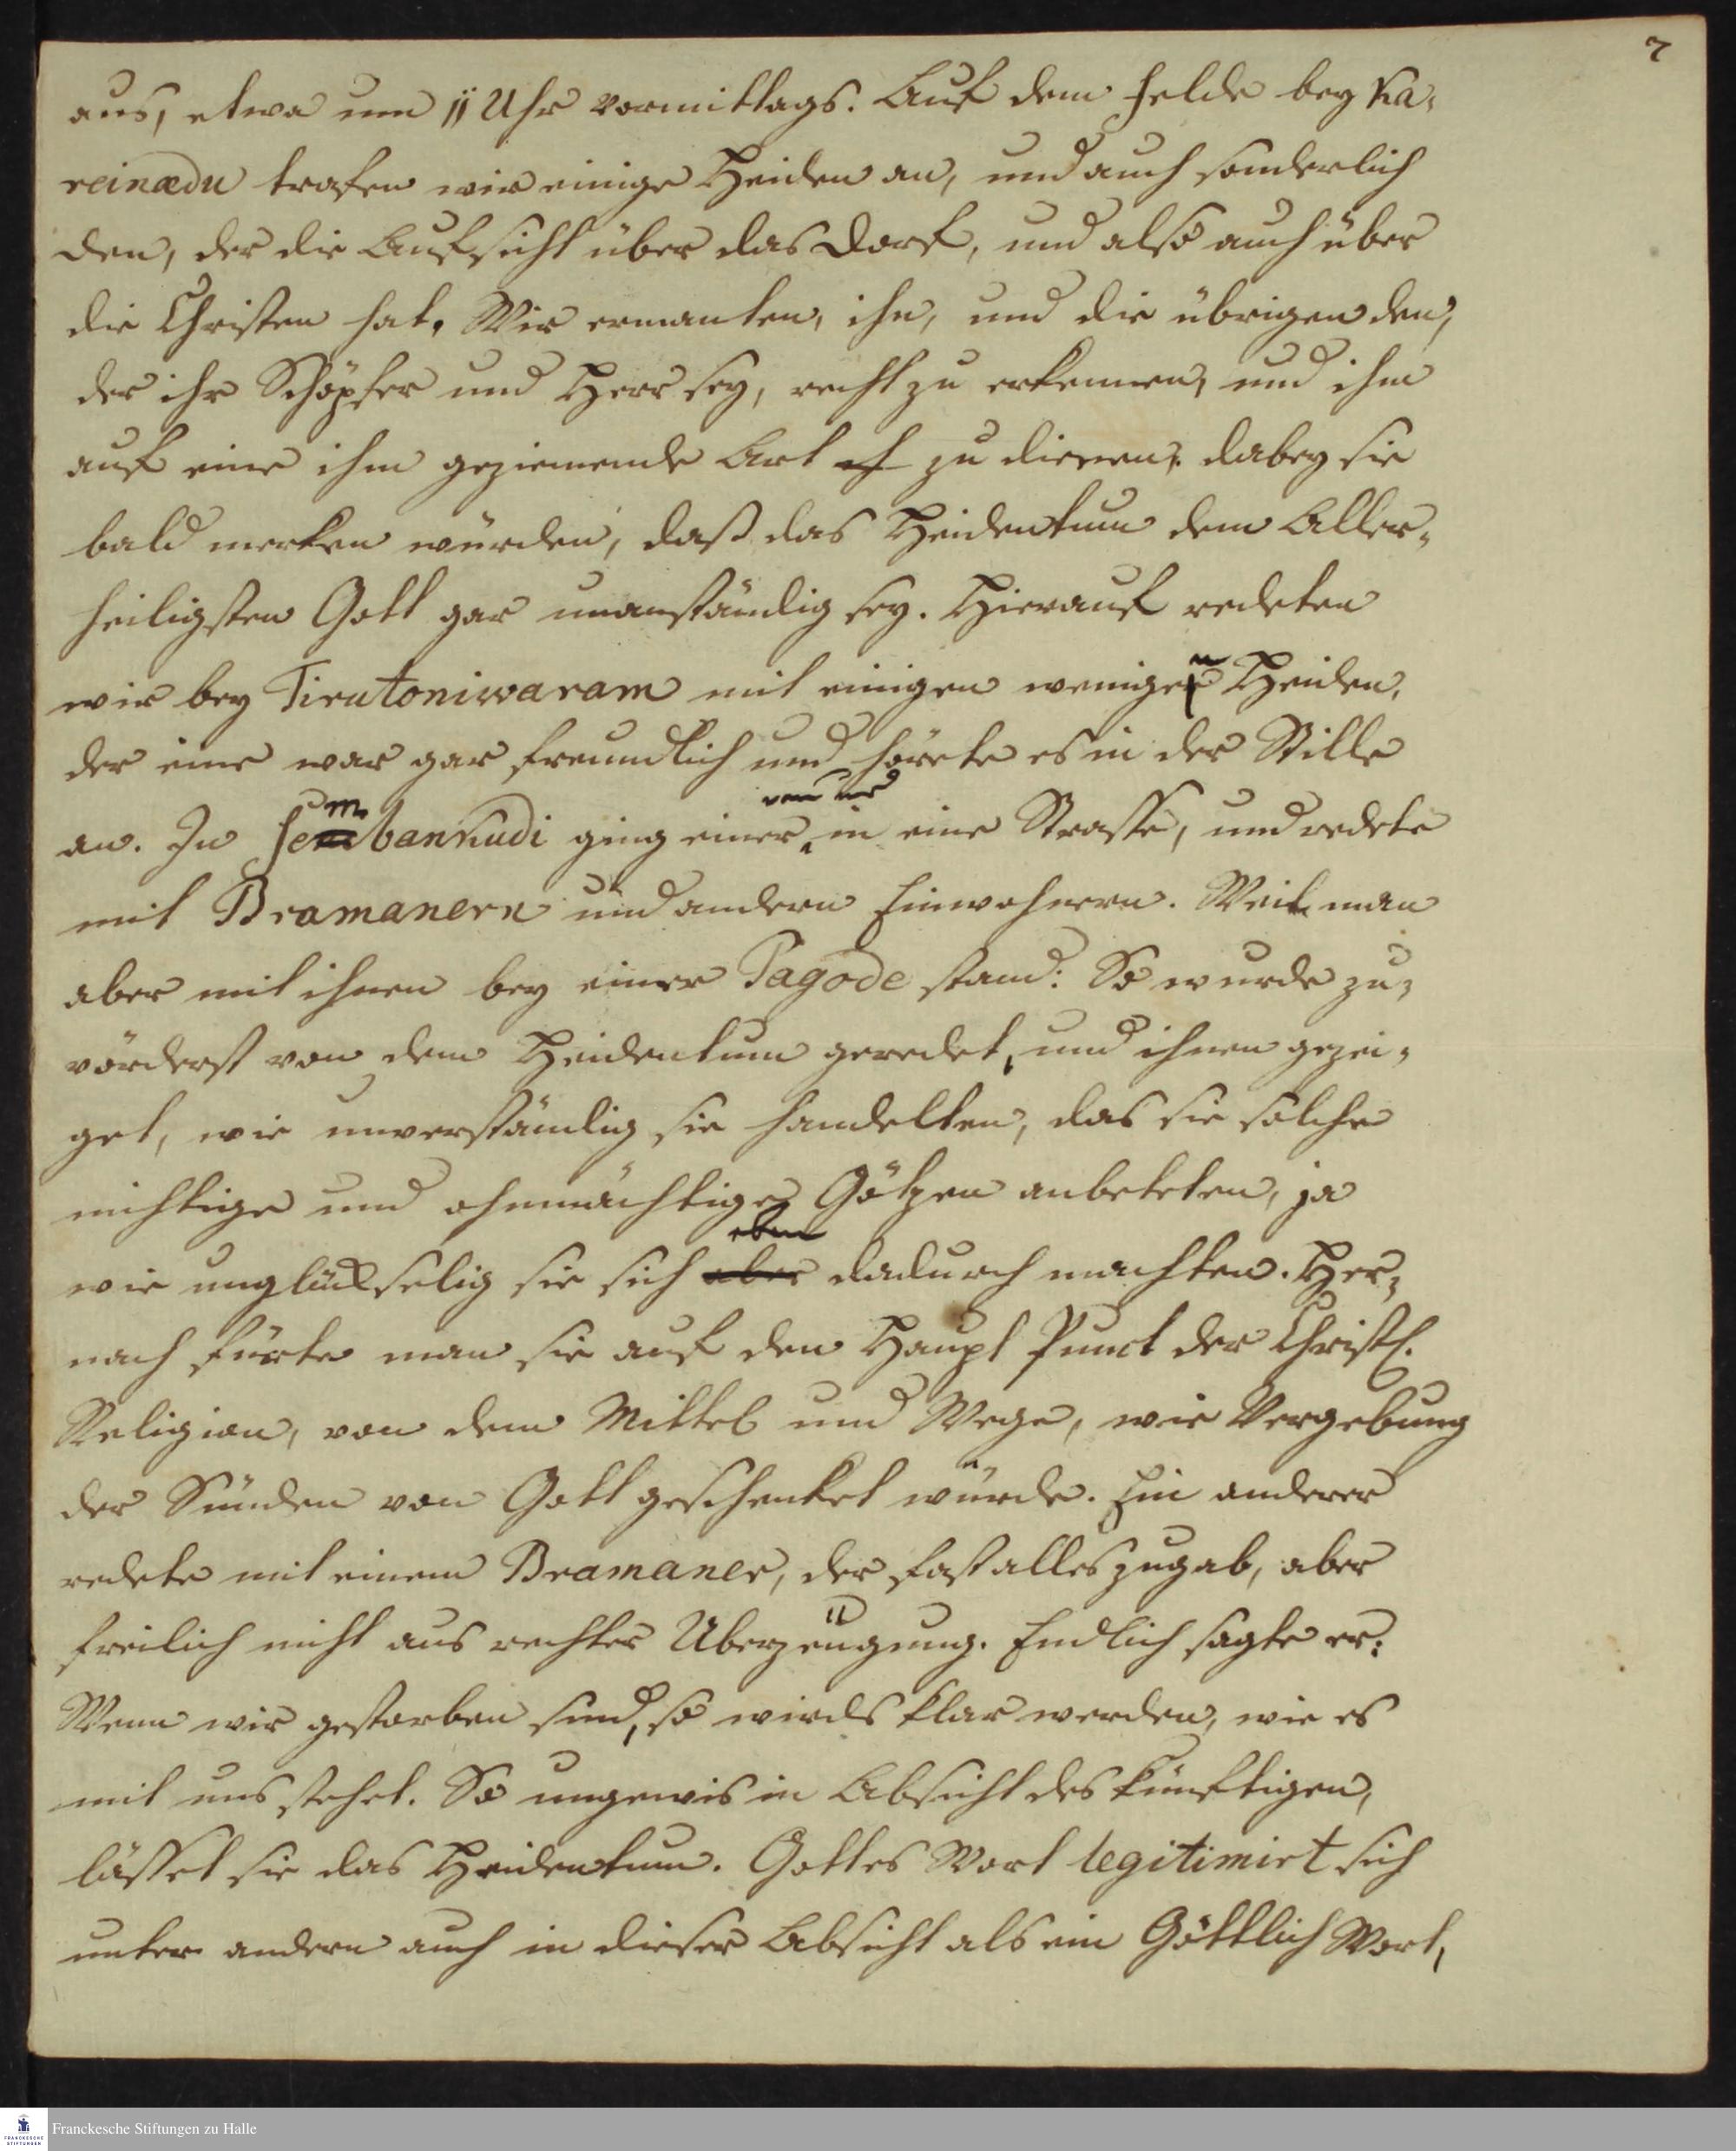 7
aus, etwa um 11 Uhr vormittags. Auf dem Felde bey Ka-
reinædu trafen wir einige Heiden an, und auch sonderlich
den, der die Aufsicht über das Dorf, und also auch über
die Christen hat. Wir ermanten, ihn, und die übrigen den,
der ihr Schöpfer und Herr sey, recht zu erkennen, und ihm
auf eine ihm geziemende Art zu dienen, dabey sie
bald merken würden, daß das Heidentum dem Aller-
heiligsten Gott gar unanständig sey. Hierauf redeten
wir bey Tirutoniwaram mit einigen wenigen Heiden,
der eine war gar freundlich und hörete es in der Stille
an. In Sembankudi ging einer von uns in eine Strasse, und redete
mit Bramanern und andern Einwohnern. Weil man
aber mit ihnen bey einer Pagode stand: So wurde zu-
vörderst von dem Heidentum geredet, und ihnen gezei-
get, wie unverständig sie handelten, das sie solche
nichtige und ohnmächtige Götzen anbeteten, ja
wie unglückselig sie sich aber eben dadurch machten. Her-
nach fürte man sie auf den Haupt Punct der Christl.
Religion, von dem Mittel und Wege, wie Vergebung
der Sünden von Gott geschenket würde. Ein anderer
redete mit einem Bramaner, der fast alles zugab, aber
freilich nicht aus rechter Uberzeugung. Endlich sagte er:
Wenn wir gestorben sind, so wirds klar werden, wie es
mit uns stehet. So ungewis in Absicht des künftigen,
lässet sie das Heidentum. Gottes Wort legitimirt sich
unter andern auch in dieser Absicht als ein Göttlich Wort,
Franckesche Stiftungen zu Halle
FRANCKESCHE
STIFTUNGEN